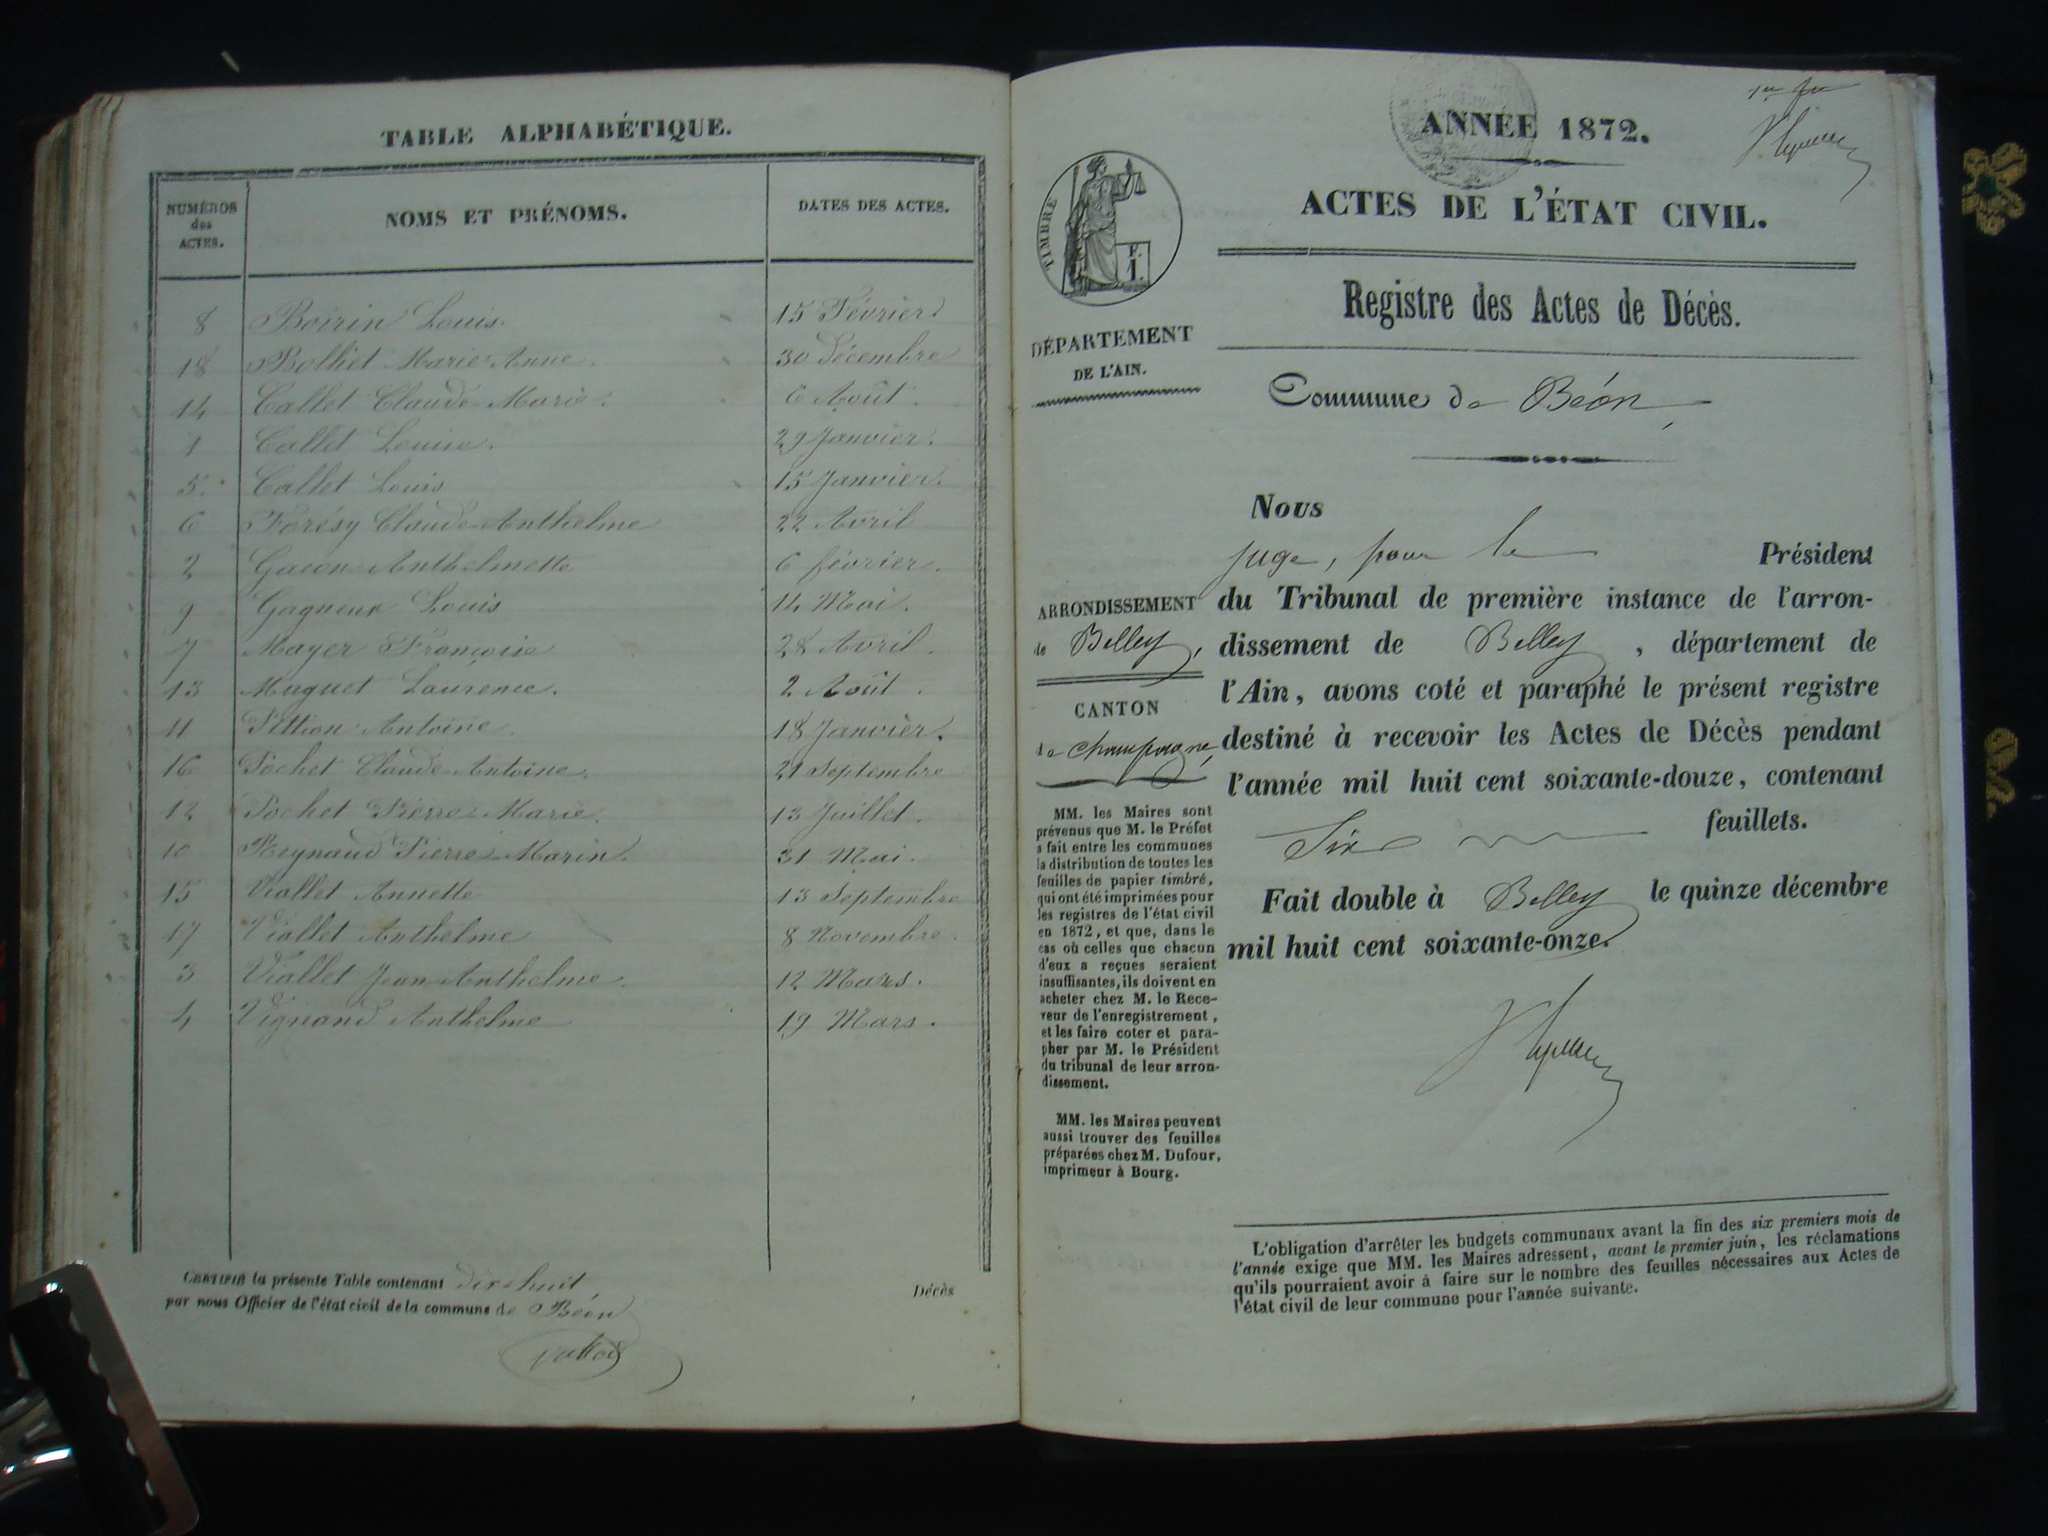 TABLE ALPHABÉTIQUE.
NUMÉROS des ACTES.
NOMS ET PRÉNOMS.
DATES DES ACTES.
8 Boirin Louis. 15 Février
18 Bolliet Marie Anne. 30 Décembre
14 Callet Claude Marie. 6 Août.
1 Callet Louise. 29 Janvier.
5. Callet Louis 15 Janvier.
6 Forésy Claude Anthelme 22 Avril
2 Gacon Anthelmette 6 février.
9 Gagneux Louis 14 Mai.
7 Mayer Françoise 28 Avril.
13 Muguet Laurence. 2 Août.
11 Pittion Antoine. 18 Janvier.
16 Pochet Claude Antoine. 21 Septembre
12 Pochet Pierre Marie. 13 Juillet.
10 Reynaud Pierre Marin. 31 Mai.
15 Viallet Annette 13 Septembre
17 Viallet Anthelme 8 Novembre.
3 Viallet Jean Anthelme. 12 Mars.
4 Vignand Anthelme 19 Mars.
CERTIFIÉ la présente Table contenant dix-huit Décès
par nous Officier de l'état civil de la commune de Béon
ANNÉE 1872.
ACTES DE L'ÉTAT CIVIL.
TIMBRE
Registre des Actes de Décès.
DÉPARTEMENT
DE L'AIN.
Commune de Béon
Nous
juge, pour le Président
du Tribunal de première instance de l'arron-
dissement de Belley, département de
l'Ain, avons coté et paraphé le présent registre
destiné à recevoir les Actes de Décès pendant
l'année mil huit cent soixante-douze, contenant
Six feuillets.
Fait double à Belley le quinze décembre
mil huit cent soixante-onze.
ARRONDISSEMENT
de Belley,
CANTON
de Champagne,
MM. les Maires sont
prévenus que M. le Préfet
a fait entre les communes
la distribution de toutes les
feuilles de papier timbré,
qui ont été imprimées pour
les registres de l'état civil
en 1872, et que, dans le
cas où celles que chacun
d'eux a reçues seraient
insuffisantes, ils doivent en
acheter chez M. le Rece-
veur de l'enregistrement,
et les faire coter et para-
pher par M. le Président
du tribunal de leur arron-
dissement.
MM. les Maires peuvent
aussi trouver des feuilles
préparées chez M. Dufour,
imprimeur à Bourg.
L'obligation d'arrêter les budgets communaux avant la fin des six premiers mois de
l'année exige que MM. les Maires adressent, avant le premier juin, les réclamations
qu'ils pourraient avoir à faire sur le nombre des feuilles nécessaires aux Actes de
l'état civil de leur commune pour l'année suivante.